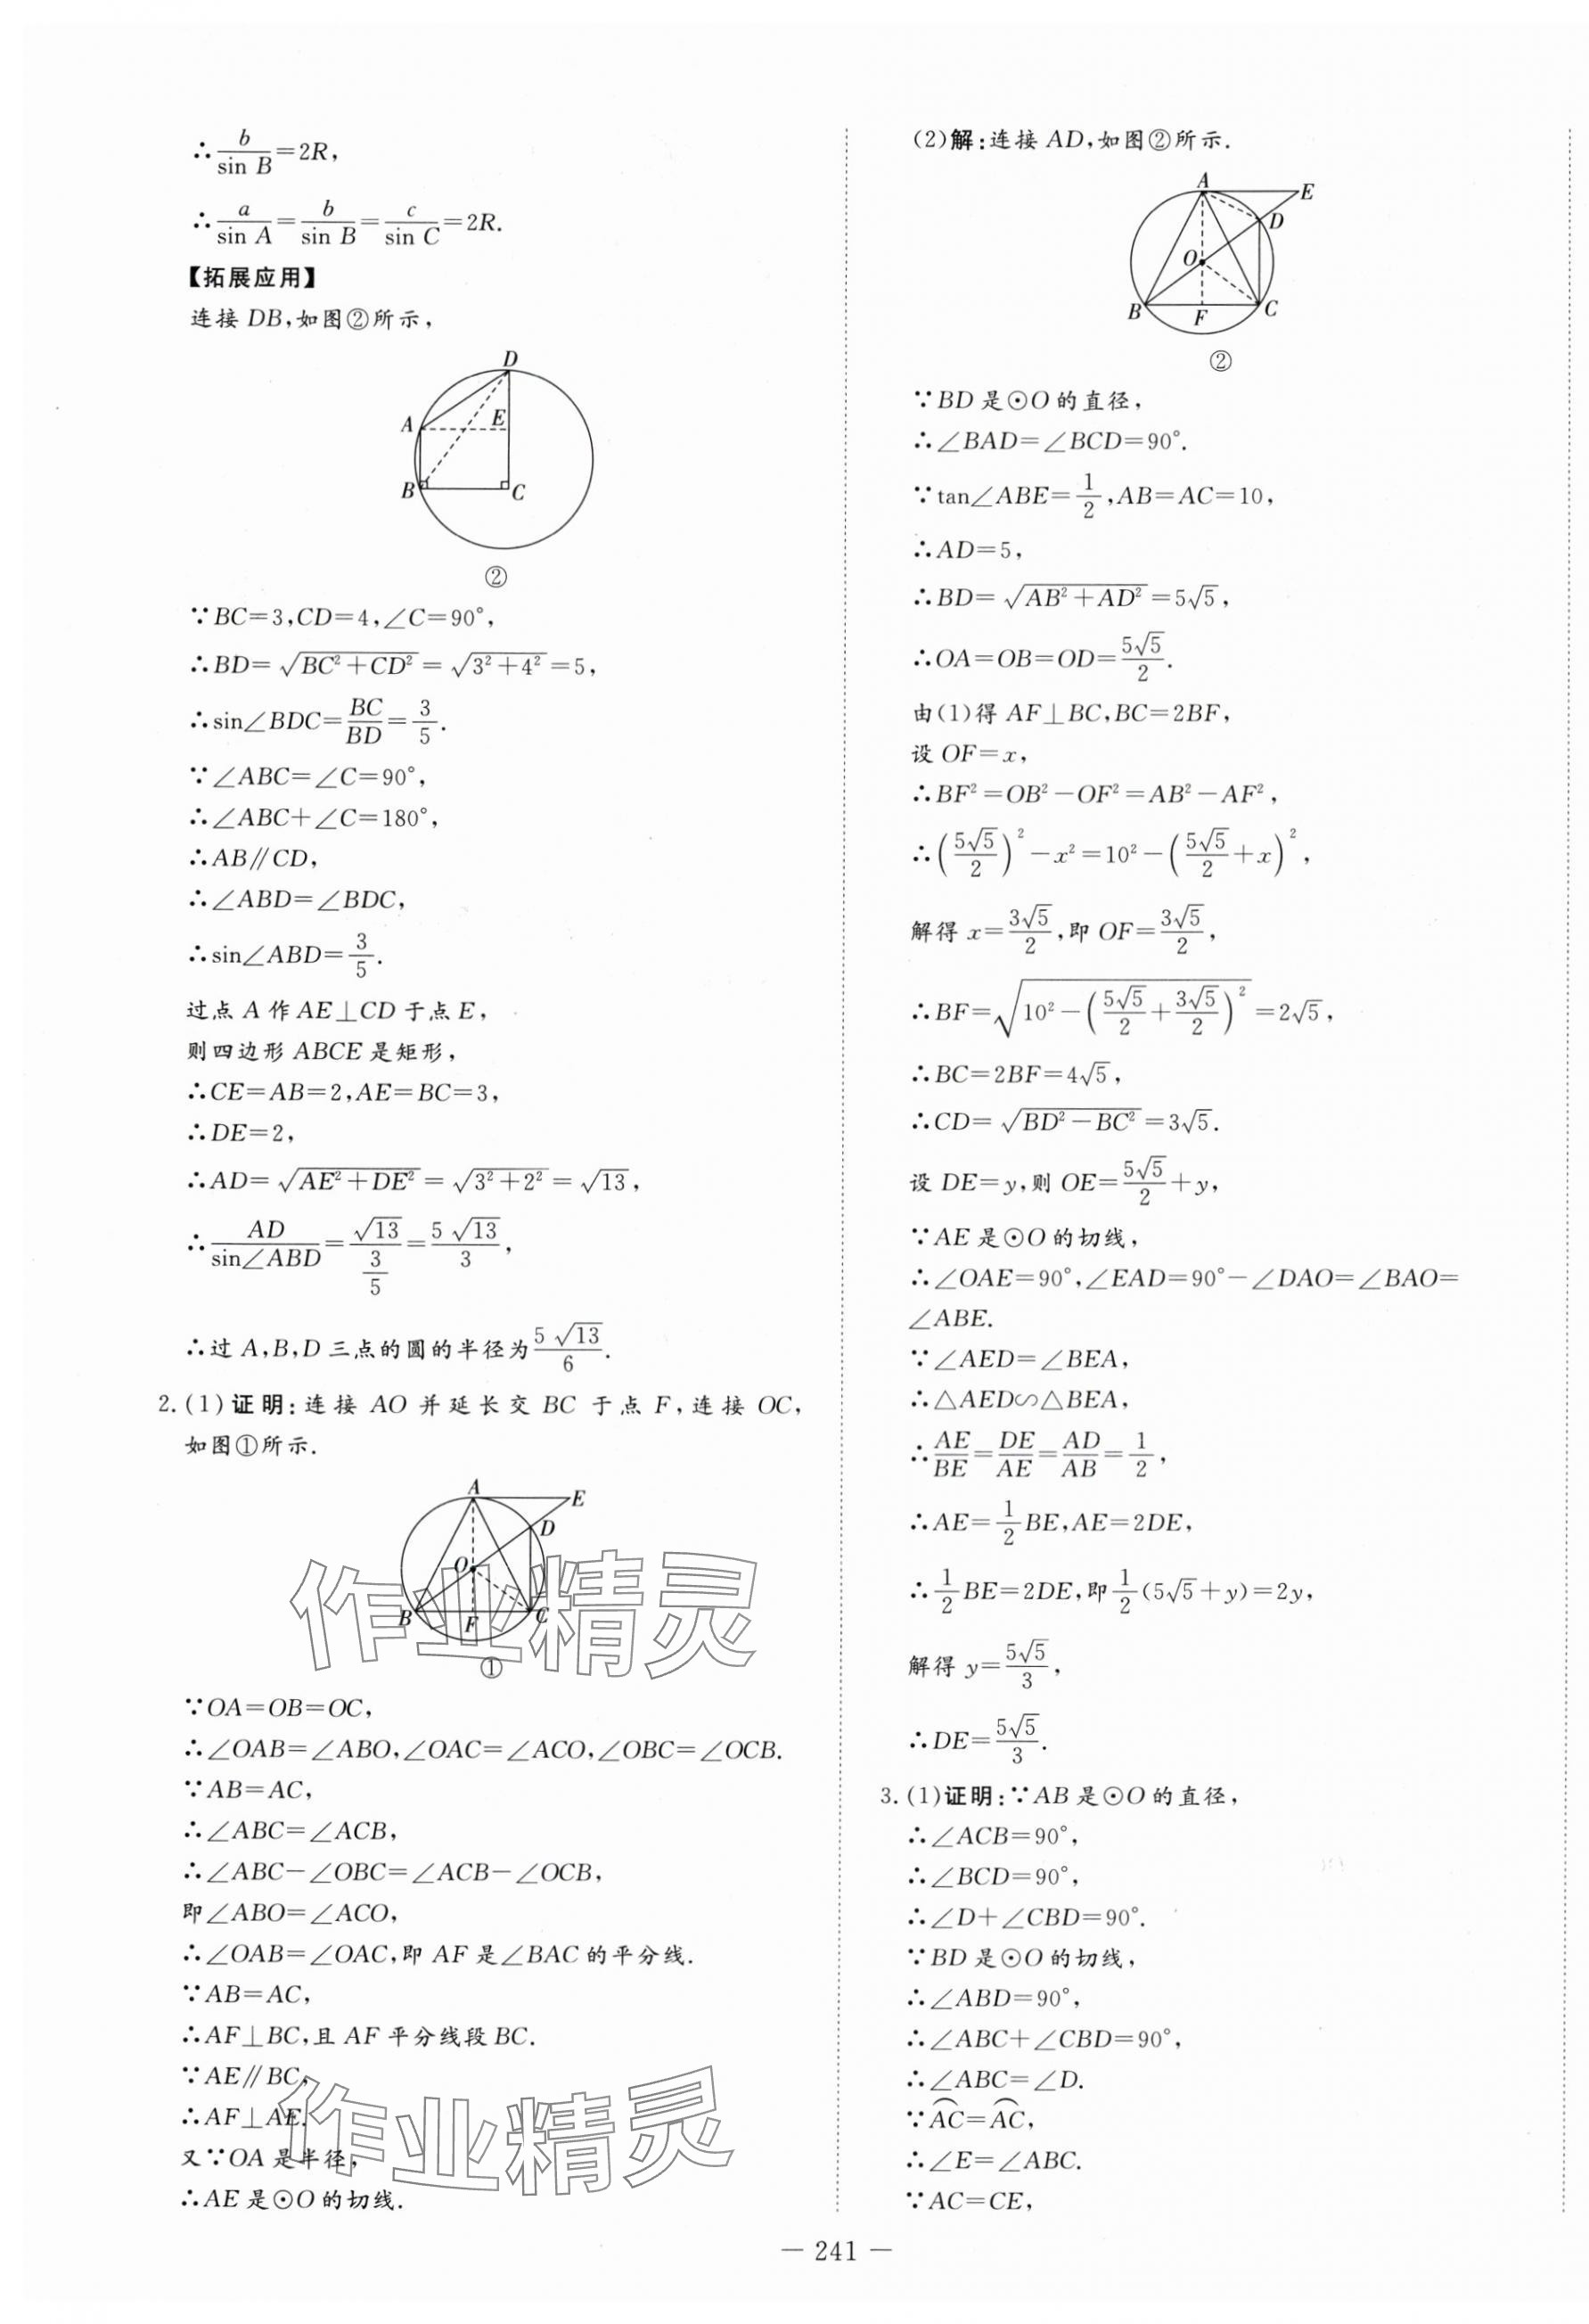 ∴b/sin B=2R,
∴a/sin A=b/sin B=c/sin C=2R.
【拓展应用】
连接 DB,如图②所示,
D
A
E
B
C
②
∵BC=3,CD=4,∠C=90°,
∴BD=√(BC²+CD²)=√(3²+4²)=5,
∴sin∠BDC=BC/BD=3/5.
∵∠ABC=∠C=90°,
∴∠ABC+∠C=180°,
∴AB∥CD,
∴∠ABD=∠BDC,
∴sin∠ABD=3/5.
过点 A 作 AE⊥CD 于点 E,
则四边形 ABCE 是矩形,
∴CE=AB=2,AE=BC=3,
∴DE=2,
∴AD=√(AE²+DE²)=√(3²+2²)=√13,
∴AD/sin∠ABD=√13/(3/5)=5√13/3,
∴过 A,B,D 三点的圆的半径为5√13/6.
2.(1)证明:连接 AO 并延长交 BC 于点 F,连接 OC,
如图①所示.
A
E
D
O
B
F
C
①
∵OA=OB=OC,
∴∠OAB=∠ABO,∠OAC=∠ACO,∠OBC=∠OCB.
∵AB=AC,
∴∠ABC=∠ACB,
∴∠ABC-∠OBC=∠ACB-∠OCB,
即∠ABO=∠ACO,
∴∠OAB=∠OAC,即 AF 是∠BAC 的平分线.
∵AB=AC,
∴AF⊥BC,且 AF 平分线段 BC.
∵AE∥BC,
∴AF⊥AE.
又∵OA 是半径,
∴AE 是⊙O 的切线.
作业精灵
作业精灵
(2)解:连接 AD,如图②所示.
A
E
D
O
B
F
C
②
∵BD 是⊙O 的直径,
∴∠BAD=∠BCD=90°.
∵tan∠ABE=1/2,AB=AC=10,
∴AD=5,
∴BD=√(AB²+AD²)=5√5,
∴OA=OB=OD=5√5/2.
由(1)得 AF⊥BC,BC=2BF,
设 OF=x,
∴BF²=OB²-OF²=AB²-AF²,
∴(5√5/2)²-x²=10²-(5√5/2+x)²,
解得 x=3√5/2,即 OF=3√5/2,
∴BF=√(10²-(5√5/2+3√5/2)²)=2√5,
∴BC=2BF=4√5,
∴CD=√(BD²-BC²)=3√5.
设 DE=y,则 OE=5√5/2+y,
∵AE 是⊙O 的切线,
∴∠OAE=90°,∠EAD=90°-∠DAO=∠BAO=
∠ABE.
∵∠AED=∠BEA,
∴△AED∽△BEA,
∴AE/BE=DE/AE=AD/AB=1/2,
∴AE=1/2BE,AE=2DE,
∴1/2BE=2DE,即1/2(5√5+y)=2y,
解得 y=5√5/3,
∴DE=5√5/3.
3.(1)证明:∵AB 是⊙O 的直径,
∴∠ACB=90°,
∴∠BCD=90°,
∴∠D+∠CBD=90°.
∵BD 是⊙O 的切线,
∴∠ABD=90°,
∴∠ABC+∠CBD=90°,
∴∠ABC=∠D.
∵⌒AC=⌒AC,
∴∠E=∠ABC.
∵AC=CE,
— 241 —